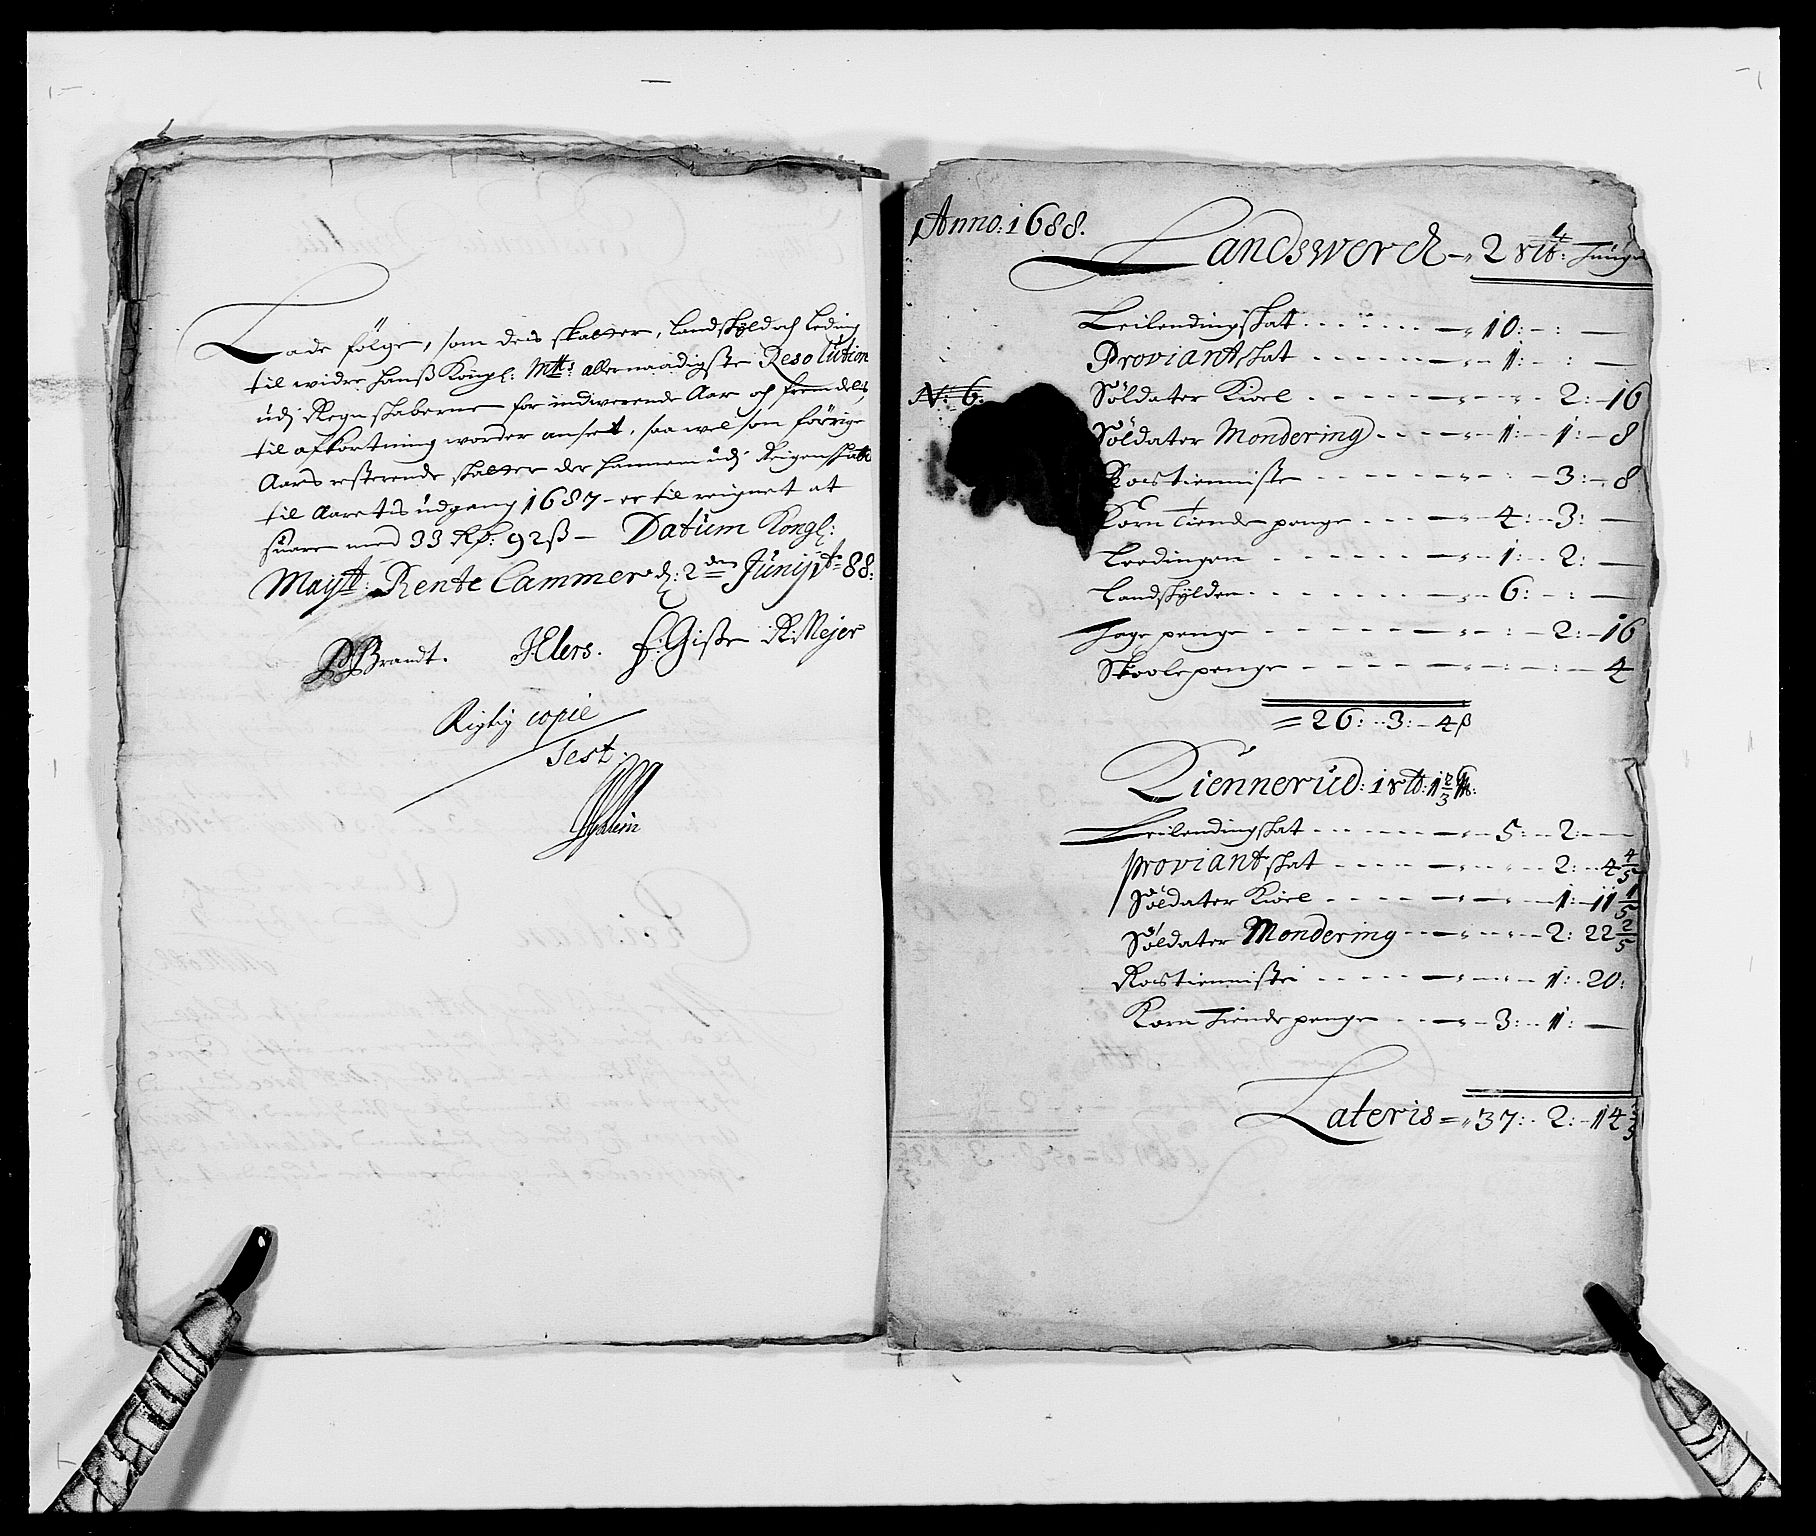 Lade følge, som deis skatter, Landskyld och Leding
til widre hanß Kongl: Mtts: allernaadigste Resolution
udj Regnskaberne for indwerende Aar och fremdelis,
til afkortning worder anset, saa wel som forrige
Aars resterende skatter der hannem udj Reigenskab
til Aaretis udgang 1687 - er til reignet at
suare med 33 Rdr: 92ß - Datum Kongl:
Mayst: Rente Cammer d: 2den Junij Ao 88:
PBrandt. JElers. H: Giße R: Meyer
Rigtig Copie
Test.
Anno: 1688.
Landsworck - 2 Sktb: Tunge
Leilendingskat . . . . - 10: - : -
Proviantskat - - - - 1: - : -
N: 6:
Soldater Kioel . . . . - 2: - 16
Soldater Mondering - - - 1: - 1: - 8
Rostienniste - - - - 3: - 8
Korn Tiende penge - - - 4: - 3: -
Leedingen - - - - 1: - 2: -
Landskylden - - - - 6: - : -
Foge penge - - - - : - 2: - 16
Skoelepenge - - - - : - : - 4
= 26: - 3: - 4ß
Diennerud: 1 Sktb: 1 2/3
Leilendingskat - - - - 5: - 2: -
Proviantskat - - - - 2: - 4 4/5
Soldater Kioel - - - - 1: - 11 1/5
Soldater Mondering - - - 2: 22 2/5
Rostienniste - - - - 1: 20:
Korn Tiende penge - - - 3: - 1: -
Lateris = 37: - 2: - 14 2/5